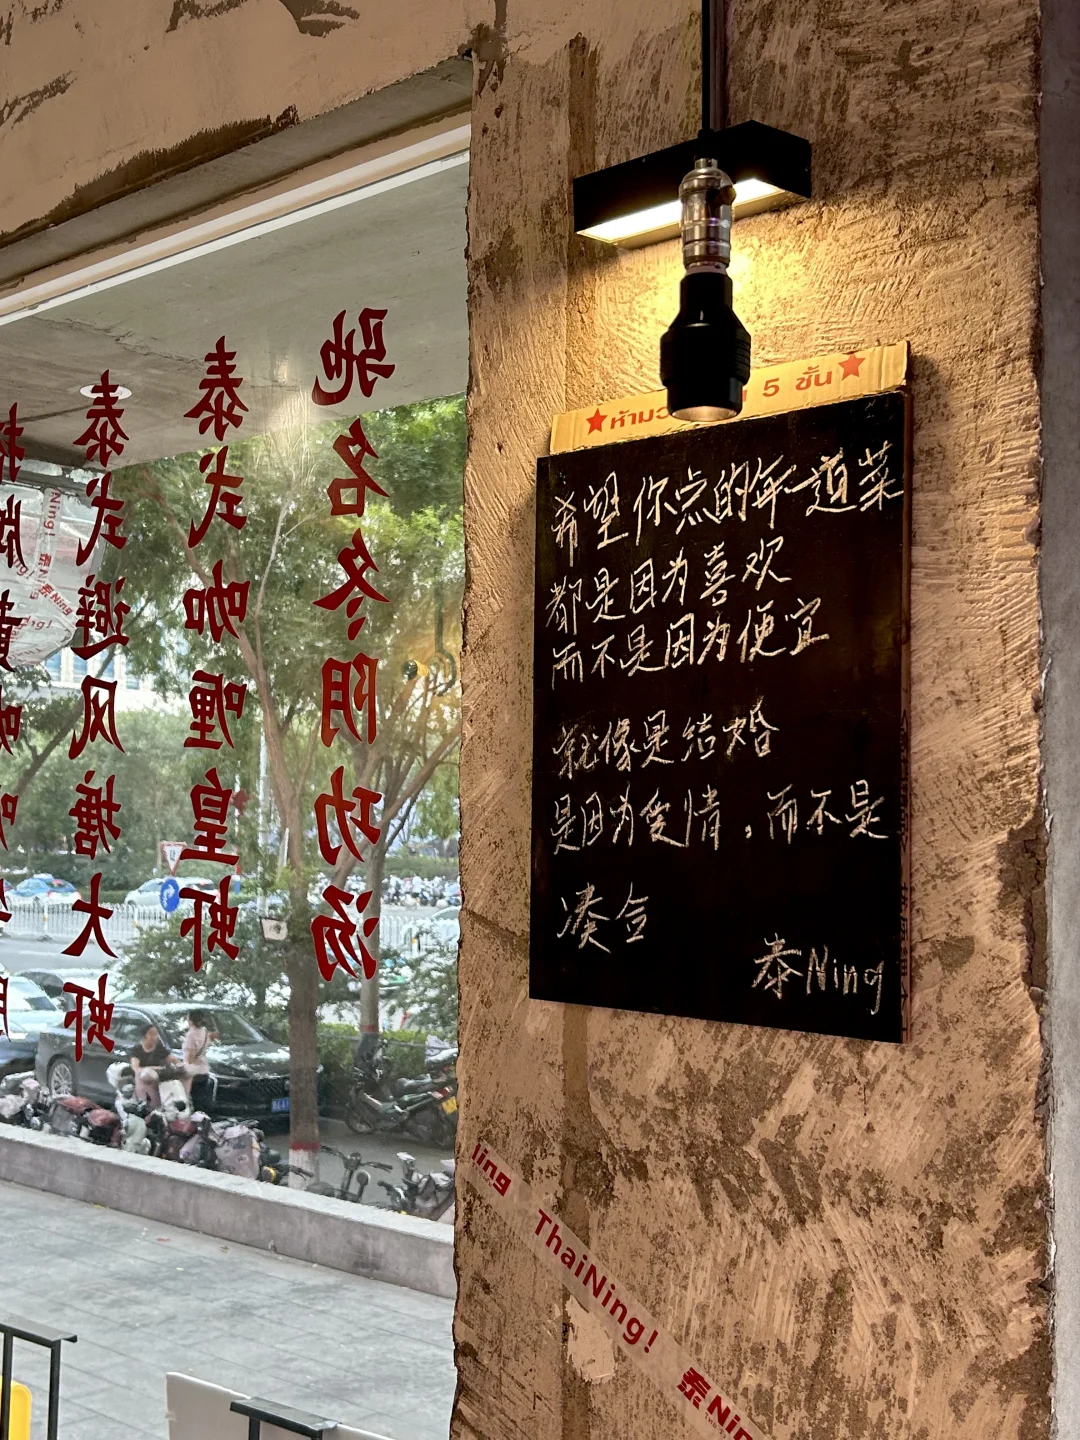 驰名冬阴功汤
泰式咖喱皇虾
泰式避风塘大虾
★ห้ามว
5 ชั้น★
希望你点的每一道菜
都是因为喜欢
而不是因为便宜
就像是结婚
是因为爱情,而不是
凑合
泰Ning
ling
ThaiNing!
泰Nin